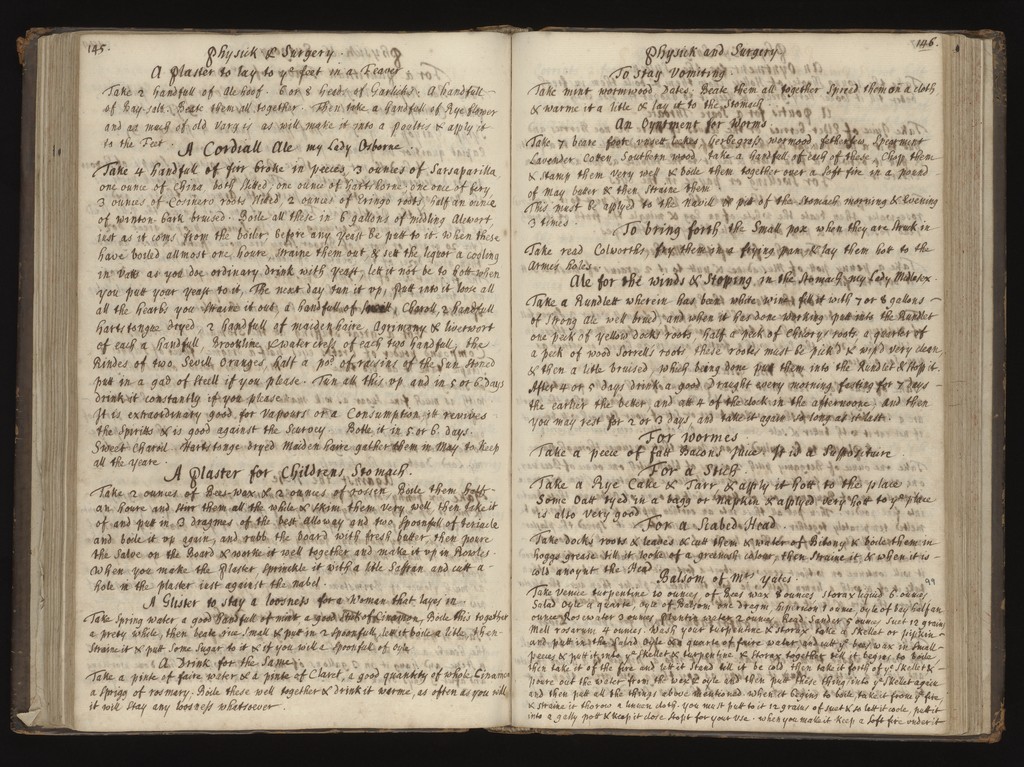 145.
Physick & Surgery.
A Plaster to lay to ye feet in a Feaver
Take 2 handfull of Alehoof. 6 or 8 heeds of Garlicke: A handfull
of Bay salt. Beate them all together. Then take a handfull of Rye flower
and as much of old Vargis as will make it into a poultis & apply it
to the Feet.
A Cordiall Ale my Lady Osborne
Take 4 handfull of firr broke in peeces, 3 ounces of Sarsaparilla
one ounce of China both slited, one ounce of hartshorne, one once of Ivry
3 ounces of Eringo roots half an ounce
of winton bark bruised. Boile all these in 6 gallons of midling Alewort,
iust as it coms from the boiler, before any yeast be putt to it. When these
have boiled allmost one houre straine them out & sett the liquor a cooling
in Vatts as you doe ordinary drink with yeast, let it not be to hott when
you putt your yeast to it, The next day tun it up, putt into it loose all
all the hearbs you straine it out a handfull of Charvil, 2 handfull
hartstongue dryed, 2 handfull of maidenhaire, Agrimony & liverwort
of each a handfull, Brooklime & watercress of each two handfull, the
Rindes of two Sevill Oranges, half a po:d of raisins of the Sun stoned
putt in a gad of steell if you please. Tun all this up and in 5 or 6 days
drink it constantly if you please
It is extraordinary good for Vapours or a Consumption it revives
the Spirits & is good against the Scurvey Botle it in 5 or 6 days.
Sweet Charvil Hartstonge dryed Maidenhaire gather them in May to keep
all the yeare.
A Plaster for Childrens Stomach.
Take 2 ounces of Bees wax & 2 ounces of rossen Boile them both
an houre and sturr them all the while & skim them very well then take it
of and putt in 3 dragmes of the best alloway and two spoonfull of treacle
and boile it up again, and rubb the board with fresh butter, then poure
the Salve on the Board & worke it well together and make it up in Rowles.
When you make the Plaster sprinkle it with a litle Saffran and cutt a
hole in the plaster iust against the nabel.
A Glister to stay a loosness for a Woman that layes in
Take Spring water a good handfull of mint a good stick of cinamon, Boile this together
a prety while, then beate rice small & putt in 2 spoonfull, let it boile a litle, then
Straine it & putt some Sugar to it & if you will 2 spoonfull of oyle
A Drink for the Same
Take a pinte of faire water & a pinte of Claret, a good quantity of whole Cinamon
a sprigg of rosmary. Boile these well together & drink it warme, as often as you will
it will stay any loosness whatsoever.
146.
Physick and Surgery
To stay Vomiting
Take mint wormwood Dates. Beate them all together Spreed them on a cloth
& warme it a litle & lay it to the Stomach.
An Oyntment for Worms
Take 7 beare foott unsett leekes, herbegrass wormood fetherfew Spearment
Lavender Cotten, Southern wood, take a handfull of each of these, Chop them
& stamp them very well & boile them together over a Soft fire in a pound
of may butter & then straine them
This must be applyed to the Navill & pitt of the Stomach, morning & Evening
3 times
To bring forth the Small pox when they are Struck in
Take read Colworths, fry them in a frying pan & lay them hot to the
Arme holes.
Ale for the winds & Stoping in the Stomach my Lady Midlesex
Take a Rundlett wherein has been white wine, fill it with 7 or 8 gallons
of Strong Ale well brued, and when it hes done working putt into the Rundlet
one peck of yellow dock roots, half a peck of Chicory roots a quarter of
a peck of wood Sorrells roots these roots must be pick'd & wip'd very clean
& then a litle bruised, which being done put them into the Rundlet & stop it.
After 4 or 5 Days drink a good draught every morning fasting for 7 days
the earlier the better and att 4 of the clock in the afternoone, And then
you may rest for 2 or 3 days, and take it again so long as it last.
For Wormes
Take a peece of fatt Bacons juice. It is a Supositure.
For a Stich
Take a Rye Cake & Tarr, & apply it hott to the place
Some Oatt tyed in a bagg or napkin & applyd very hott to ye place
is also very good
For a Scabed Head.
Take docks roots & leaves & cutt them & water of Bitony & boile them in
hoggs grease till it looke of a greenish colour, then Straine it, & when it is
cold anoynt the Head
Balsom of Mrs Yates. 99
Take Venice turpentine 10 ounces of Bees wax 8 ounces Storax liquid 6 ounces
Salad Oyle a quarte, oyle of Balsom one dragm hipericon 1 ounce, oyle of bay half an
ounce Rosewater 2 ounces Plantin water 2 ounces, Read Sander 5 ounces Suet 12 grains
Mell rosarum 4 ounces. Wash your turpentine & storax take a Skellet or pipkin
and putt in the Salad Oyle & a quarte of faire water, and cutt ye bees wax in small
peeces & putt it into ye Skellet & turpentine & Storax together till it begins to boile
then take it of the fire and let it stand till it be cold then take it forth of ye Skellet &
poure out the water from the wax & oyle and then put these thing into ye Skellet again
and then putt all the things above mentioned, when it begins to boile take it from ye fire
& straine it thorow a linnen cloth. you must put to it 12 grains of suet & so lett it coole, putt it
into a gally pott & keep it close stopt for your Use. when you make it keep a soft fire under it